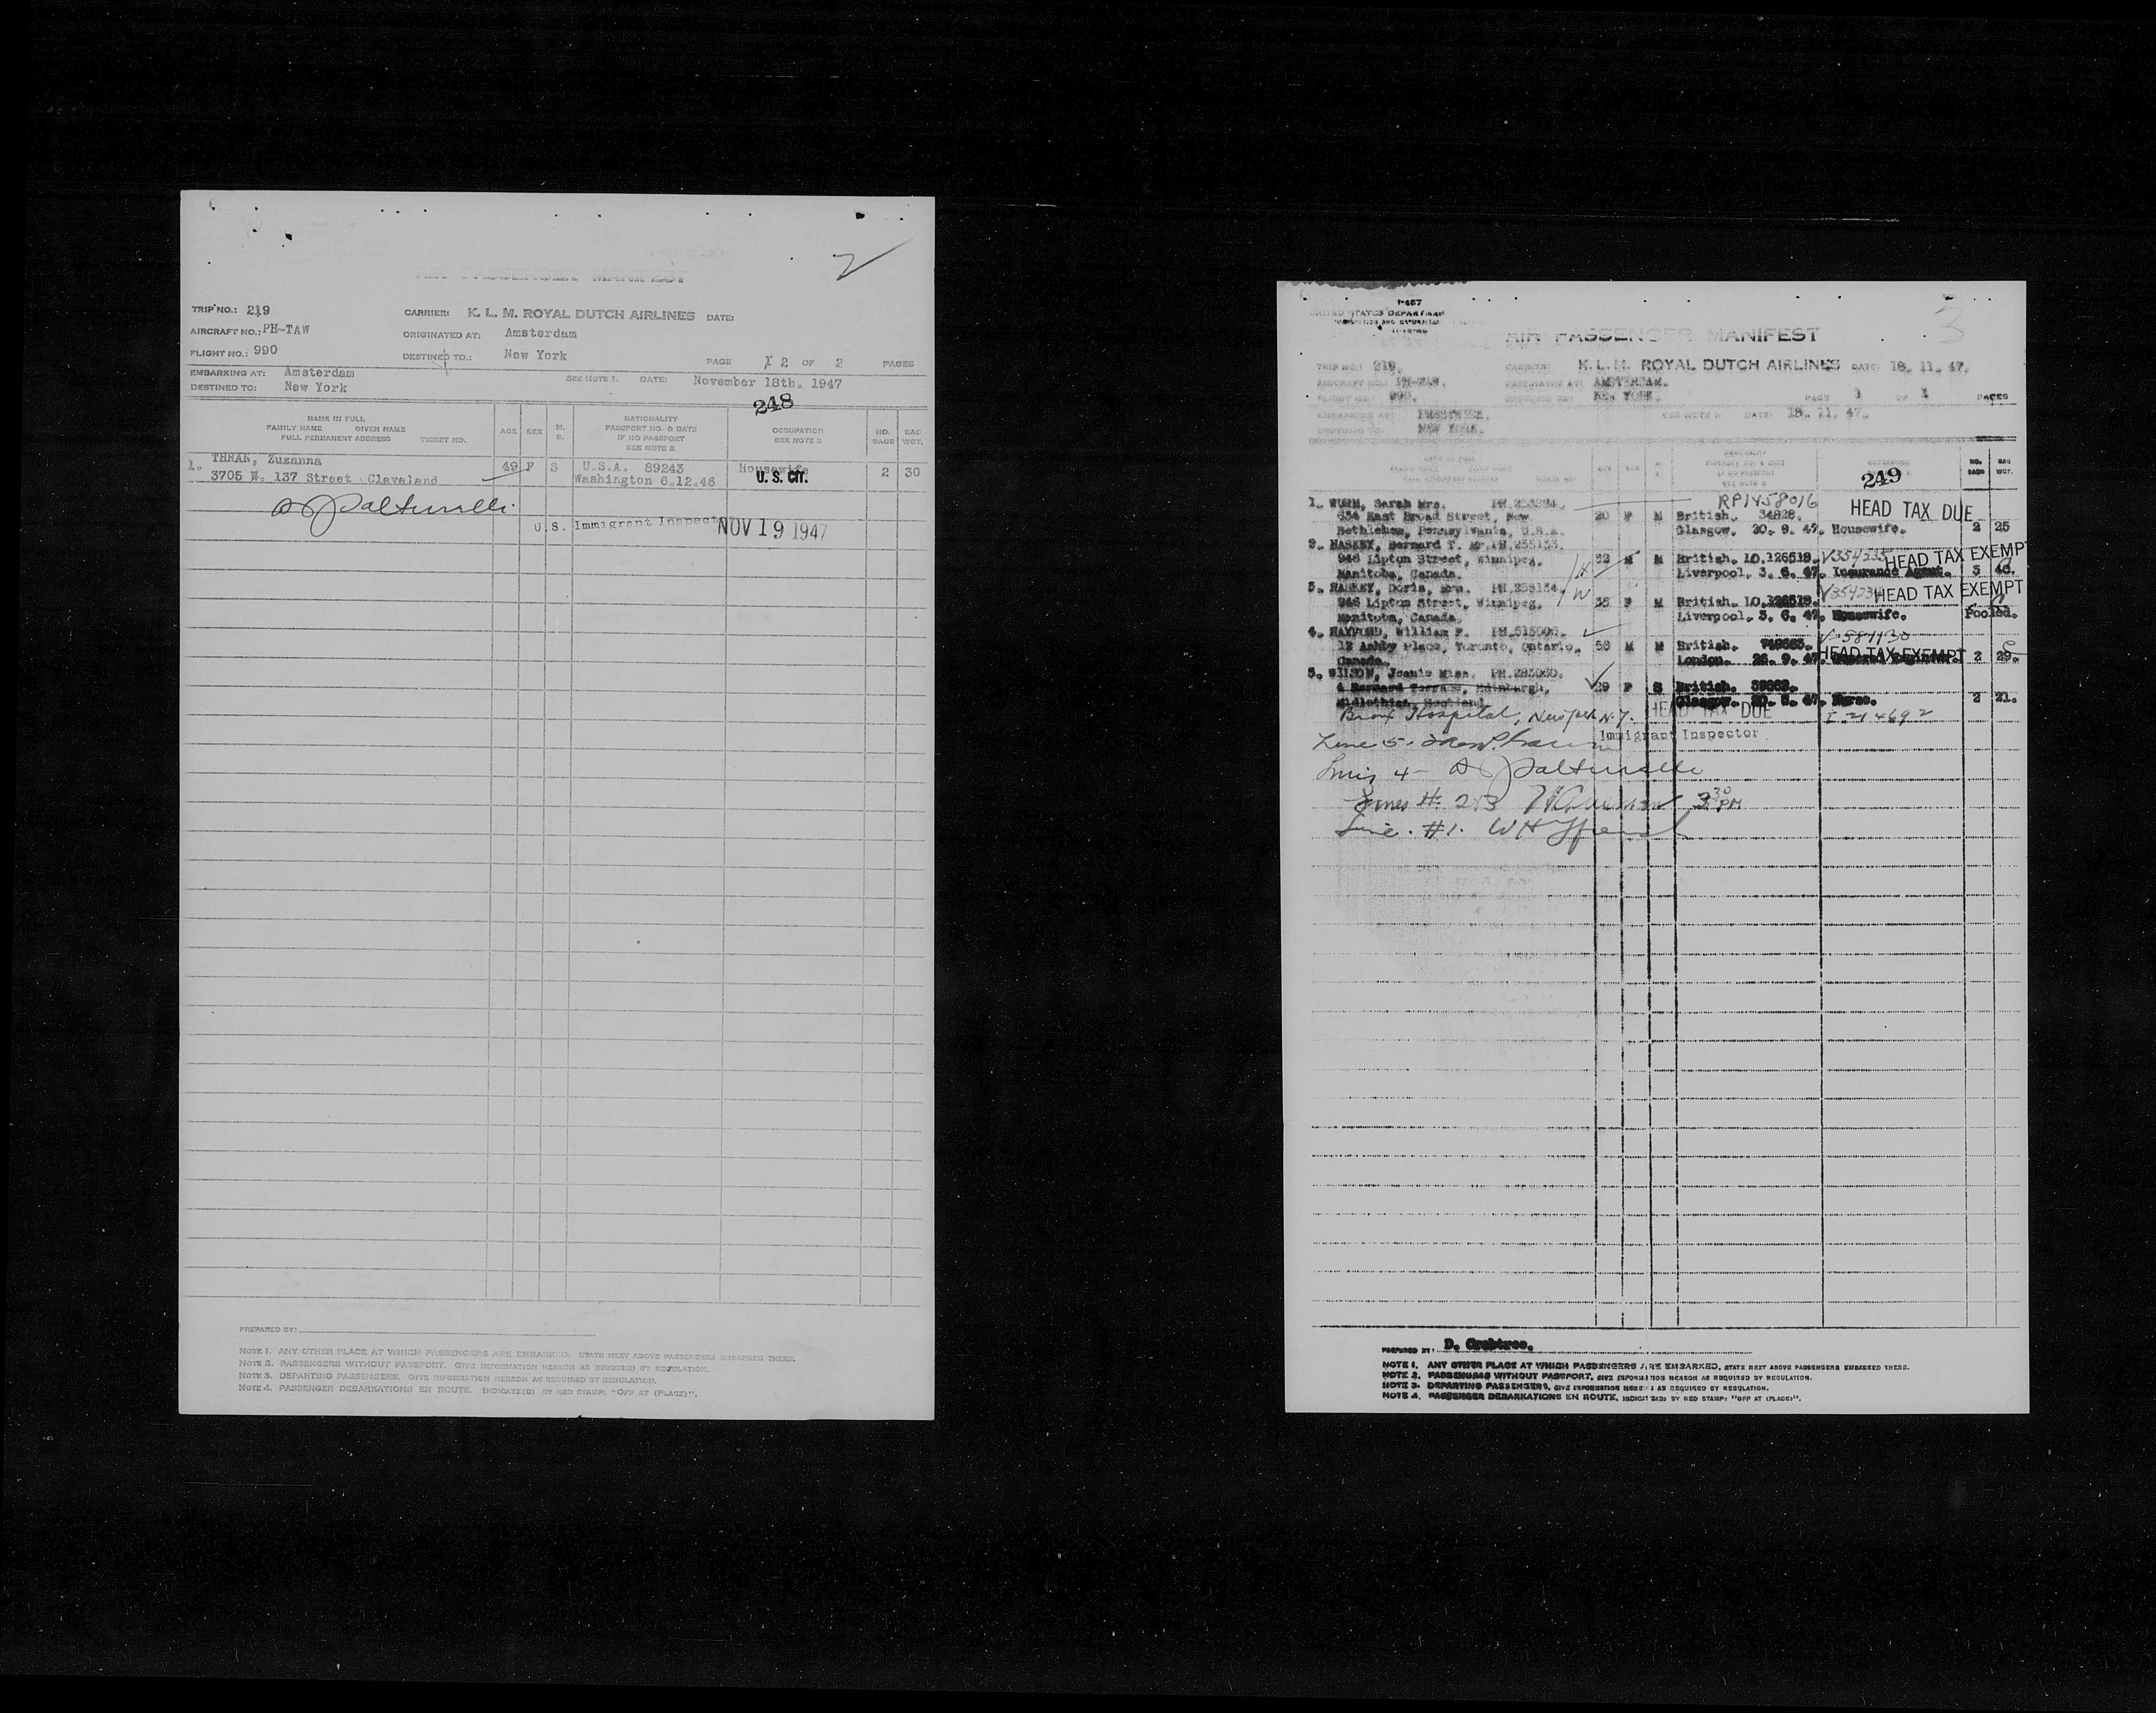 2
TRIP NO.: 219 CARRIER: K. L. M. ROYAL DUTCH AIRLINES DATE:
AIRCRAFT NO.: PH-TAW ORIGINATED AT: Amsterdam
FLIGHT NO.: 990 DESTINED TO.: New York PAGE 2 OF 2 PAGES
EMBARKING AT: Amsterdam SEE NOTE 1. DATE: November 18th. 1947
DESTINED TO: New York
248
NAME IN FULL
FAMILY NAME GIVEN NAME
FULL PERMANENT ADDRESS TICKET NO.
AGE SEX M. S.
NATIONALITY
PASSPORT NO. & DATE
IF NO PASSPORT
SEE NOTE 2
OCCUPATION
SEE NOTE 2
NO. BAGS
BAG WGT.
1. THRAN, Zuzanna 49 F S U.S.A. 89243 Housewife 2 30
3705 W. 137 Street Cleveland Washington 6.12.46 U. S. CIT.
U.S. Immigrant Inspector
NOV 19 1947
PREPARED BY:
NOTE 1. ANY OTHER PLACE AT WHICH PASSENGERS ARE EMBARKED. STATE NEXT ABOVE PASSENGERS EMBARKED THERE.
NOTE 2. PASSENGERS WITHOUT PASSPORT. GIVE INFORMATION HEREON AS REQUIRED BY REGULATION.
NOTE 3. DEPARTING PASSENGERS. GIVE INFORMATION HEREON AS REQUIRED BY REGULATION.
NOTE 4. PASSENGER DEBARKATIONS EN ROUTE. INDICATE(D) BY RED STAMP: "OFF AT (PLACE)".
I-457
UNITED STATES DEPARTMENT
3
AIR PASSENGER MANIFEST
TRIP NO.: 219. CARRIER: K.L.M. ROYAL DUTCH AIRLINES DATE: 18. 11. 47.
AIRCRAFT NO.: PH-TAW. ORIGINATED AT: AMSTERDAM.
FLIGHT NO.: 990. DESTINED TO: NEW YORK. PAGE 1 OF 1 PAGES
EMBARKING AT: PRESTWICK. SEE NOTE 1. DATE: 18. 11. 47.
NEW YORK.
249
NO. BAGS
BAG WGT.
RP1458016
HEAD TAX DUE
1. WURM, Sarah Mrs. 20 F M British. 34828.
634 East Broad Street, New
Bethlehem, Pennsylvania, U.S.A. Glasgow. 20. 9. 47. Housewife. 2 25
2. HASKEY, Bernard T. Mr. PH.255133.
946 Lipton Street, Winnipeg. M M British. LO.126519. HEAD TAX EXEMPT
Manitoba, Canada. Liverpool. 3. 6. 47. Insurance Agent.
H
3. HASKEY, Doris, Mrs. PH.255134. HEAD TAX EXEMPT
W
946 Lipton Street, Winnipeg. F M British.
Manitoba, Canada. Liverpool. 3. 6. 47. Housewife. Pooled.
4. HAYWARD, William F. V-581130
12 Ashby Place, Toronto, Ontario. M M British. HEAD TAX EXEMPT
Canada. London. 26. 9. 47. 2 29.
5. WILSON, Jeanie Miss.
4 Bernard Terrace, Edinburgh, 29 F S British.
Midlothian, Scotland. Glasgow. Nurse. 2 21.
Bronx Hospital, New York N.Y. HEAD TAX DUE
Immigrant Inspector
Line 5.
Line 4 -
Lines # 2 & 3 3 30 PM
Line. #1.
PREPARED BY: D. Crabtree.
NOTE 1. ANY OTHER PLACE AT WHICH PASSENGERS ARE EMBARKED. STATE NEXT ABOVE PASSENGERS EMBARKED THERE.
NOTE 2. PASSENGERS WITHOUT PASSPORT. GIVE INFORMATION HEREON AS REQUIRED BY REGULATION.
NOTE 3. DEPARTING PASSENGERS. GIVE INFORMATION HEREON AS REQUIRED BY REGULATION.
NOTE 4. PASSENGER DEBARKATIONS EN ROUTE. INDICATE(D) BY RED STAMP: "OFF AT (PLACE)".